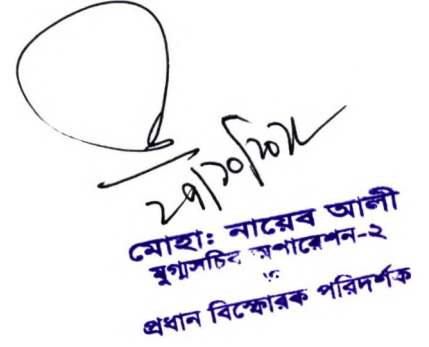 মোহা: নায়েব আলী
যুগ্মসচিব অপারেশন-২
ও
প্রধান বিস্ফোরক পরিদর্শক